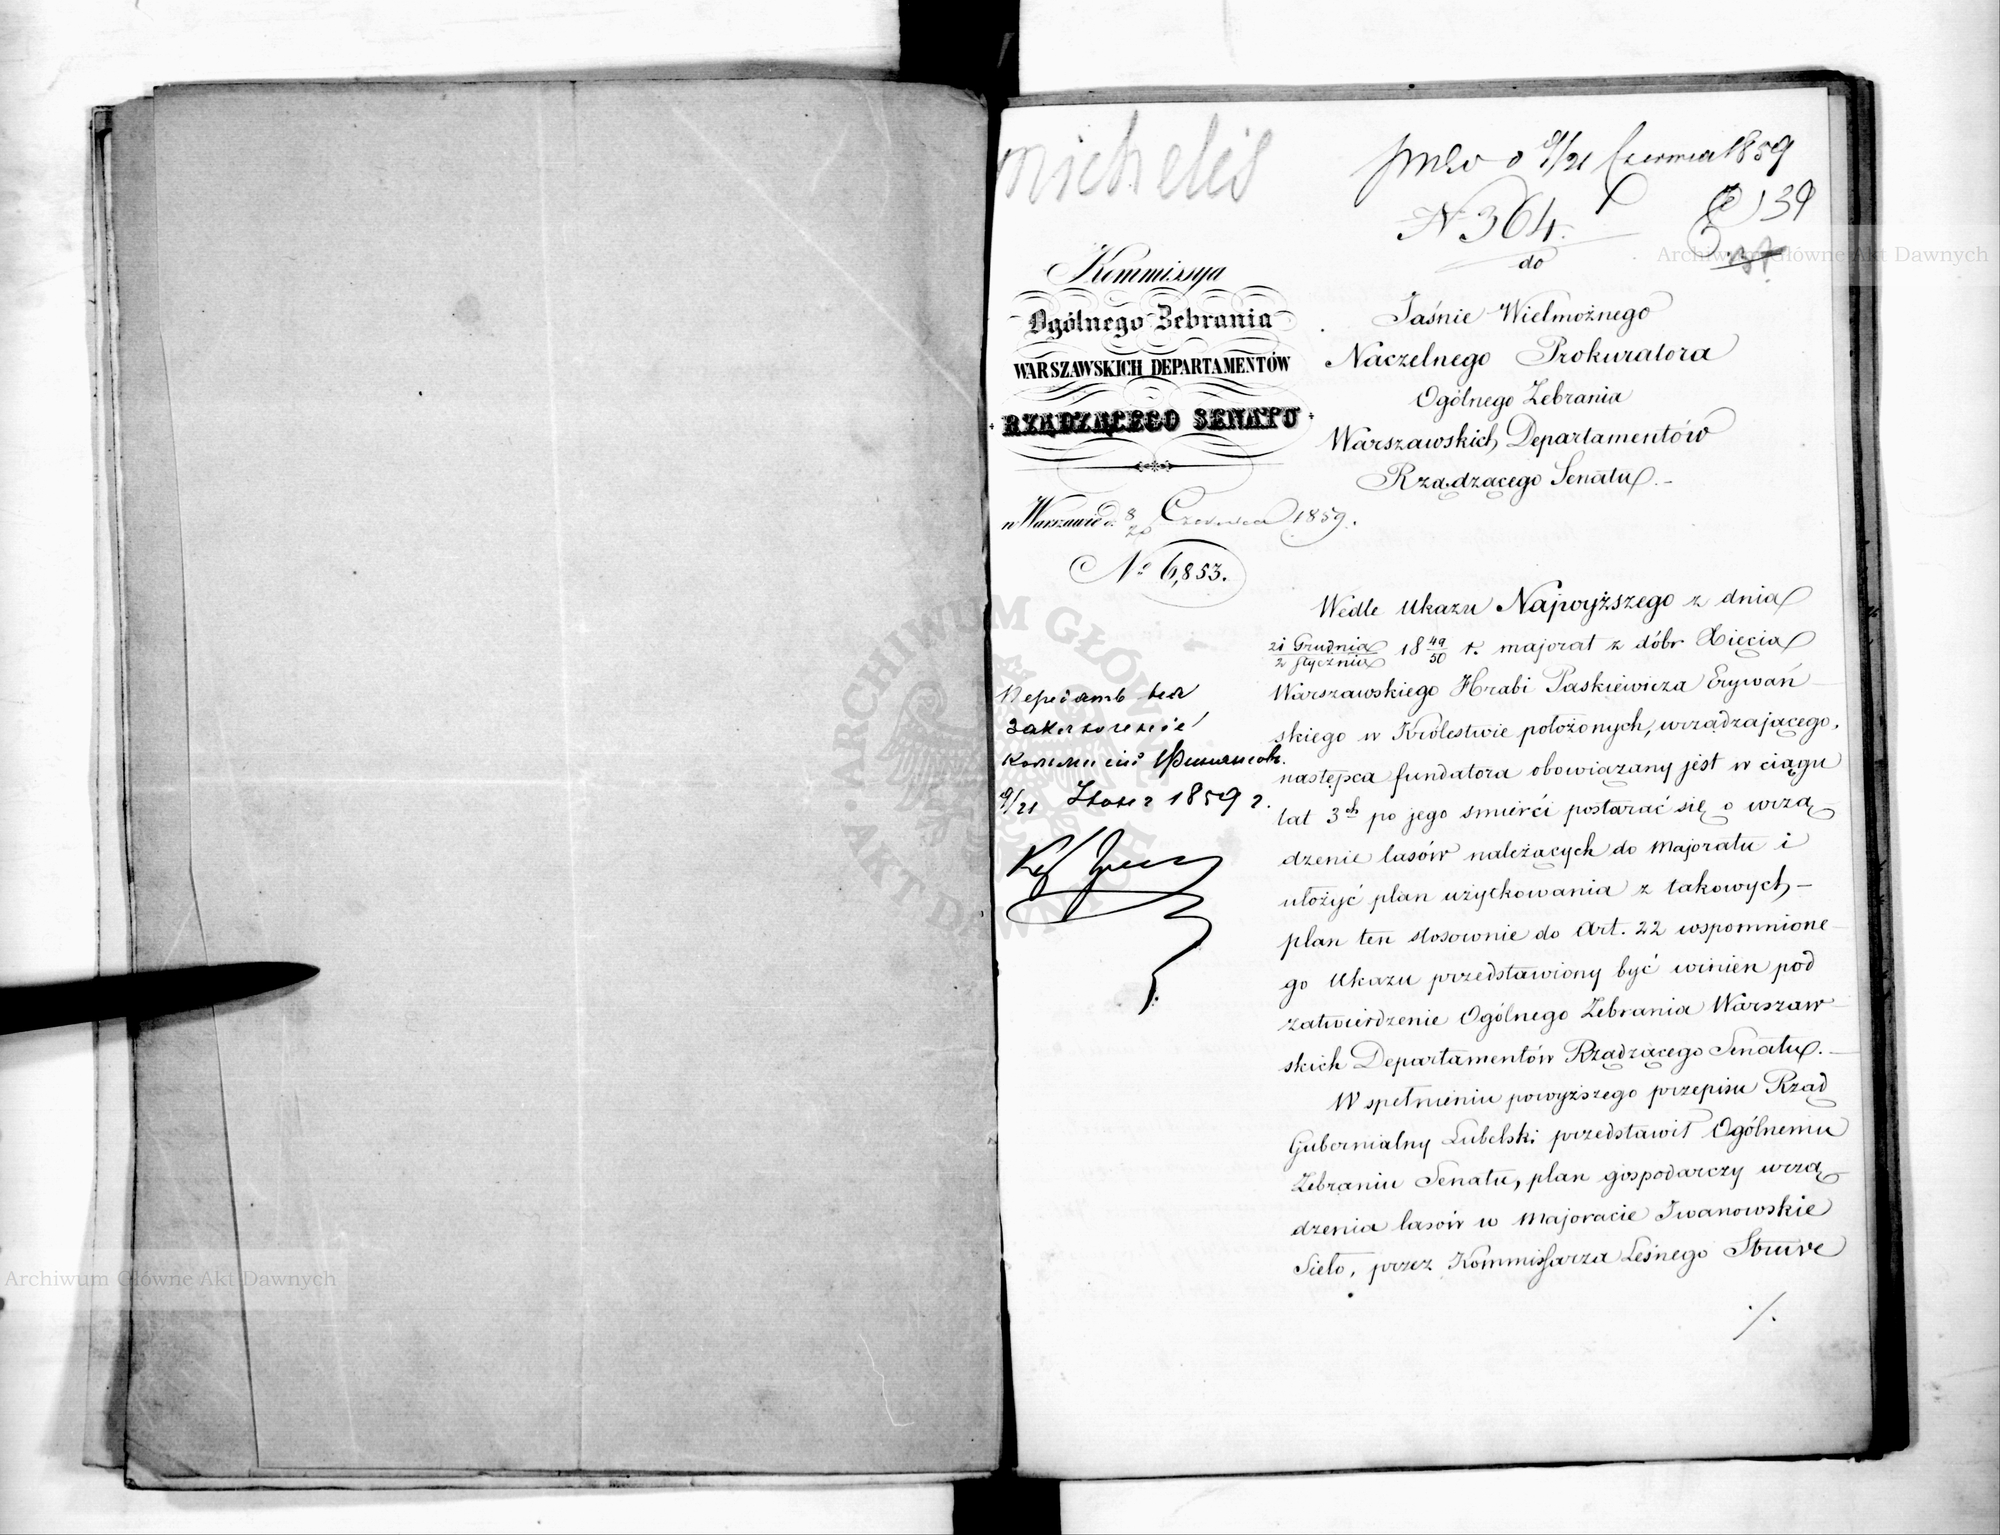 michelis
9/21 Czerwca 1859
N 364.
139
do
Kommissya
Ogólnego Zebrania
WARSZAWSKICH DEPARTAMENTÓW
RZĄDZĄCEGO SENATU
w Warszawie d. 8/20 Czerwca 1859.
No 6,853.
Jaśnie Wielmożnego
Naczelnego Prokuratora
Ogólnego Zebrania
Warszawskich Departamentów
Rządzącego Senatu.-
9/21 1859
Wedle Ukazu Najwyższego z dnia
21 Grudnia/2 Stycznia 18 49/50 r. majorat z dóbr Xięcia
Warszawskiego Hrabi Paskiewicza Erywań
skiego w Królestwie położonych, urządzającego,
następca fundatora obowiązany jest w ciągu
lat 3ch po jego śmierci postarać się o urzą
dzenie lasów należących do Majoratu i
ułożyć plan użytkowania z takowych –
plan ten stosownie do Art. 22 wspomnione
go Ukazu przedstawiony być winien pod
zatwierdzenie Ogólnego Zebrania Warszaw
skich Departamentów Rządzącego Senatu. –
W spełnieniu powyższego przepisu Rząd
Gubernialny Lubelski przedstawił Ogólnemu
Zebraniu Senatu, plan gospodarczy urzą
dzenia lasów w Majoracie Iwanowskie
Sieło, przez Kommissarza Leśnego Struve
./.
Archiwum Główne Akt Dawnych
Archiwum Główne Akt Dawnych
ARCHIWUM GŁÓWNE AKT DAWNYCH